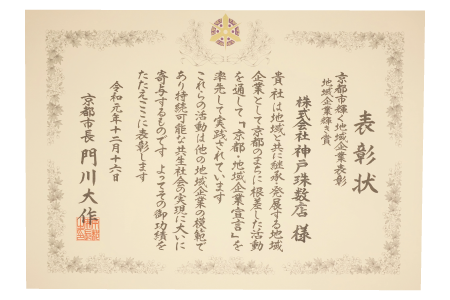 表彰状
京都市輝く地域企業表彰
地域企業輝き賞
株式会社 神戸珠数店 様
貴社は地域と共に継承・発展する地域
企業として京都のまちに根差した活動
を通して「京都・地域企業宣言」を
率先して実践されています
これらの活動は他の地域企業の模範で
あり持続可能な共生社会の実現に大いに
寄与するものです よってその御功績を
たたえここに表彰します
令和元年十二月十六日
京都市長 門川大作